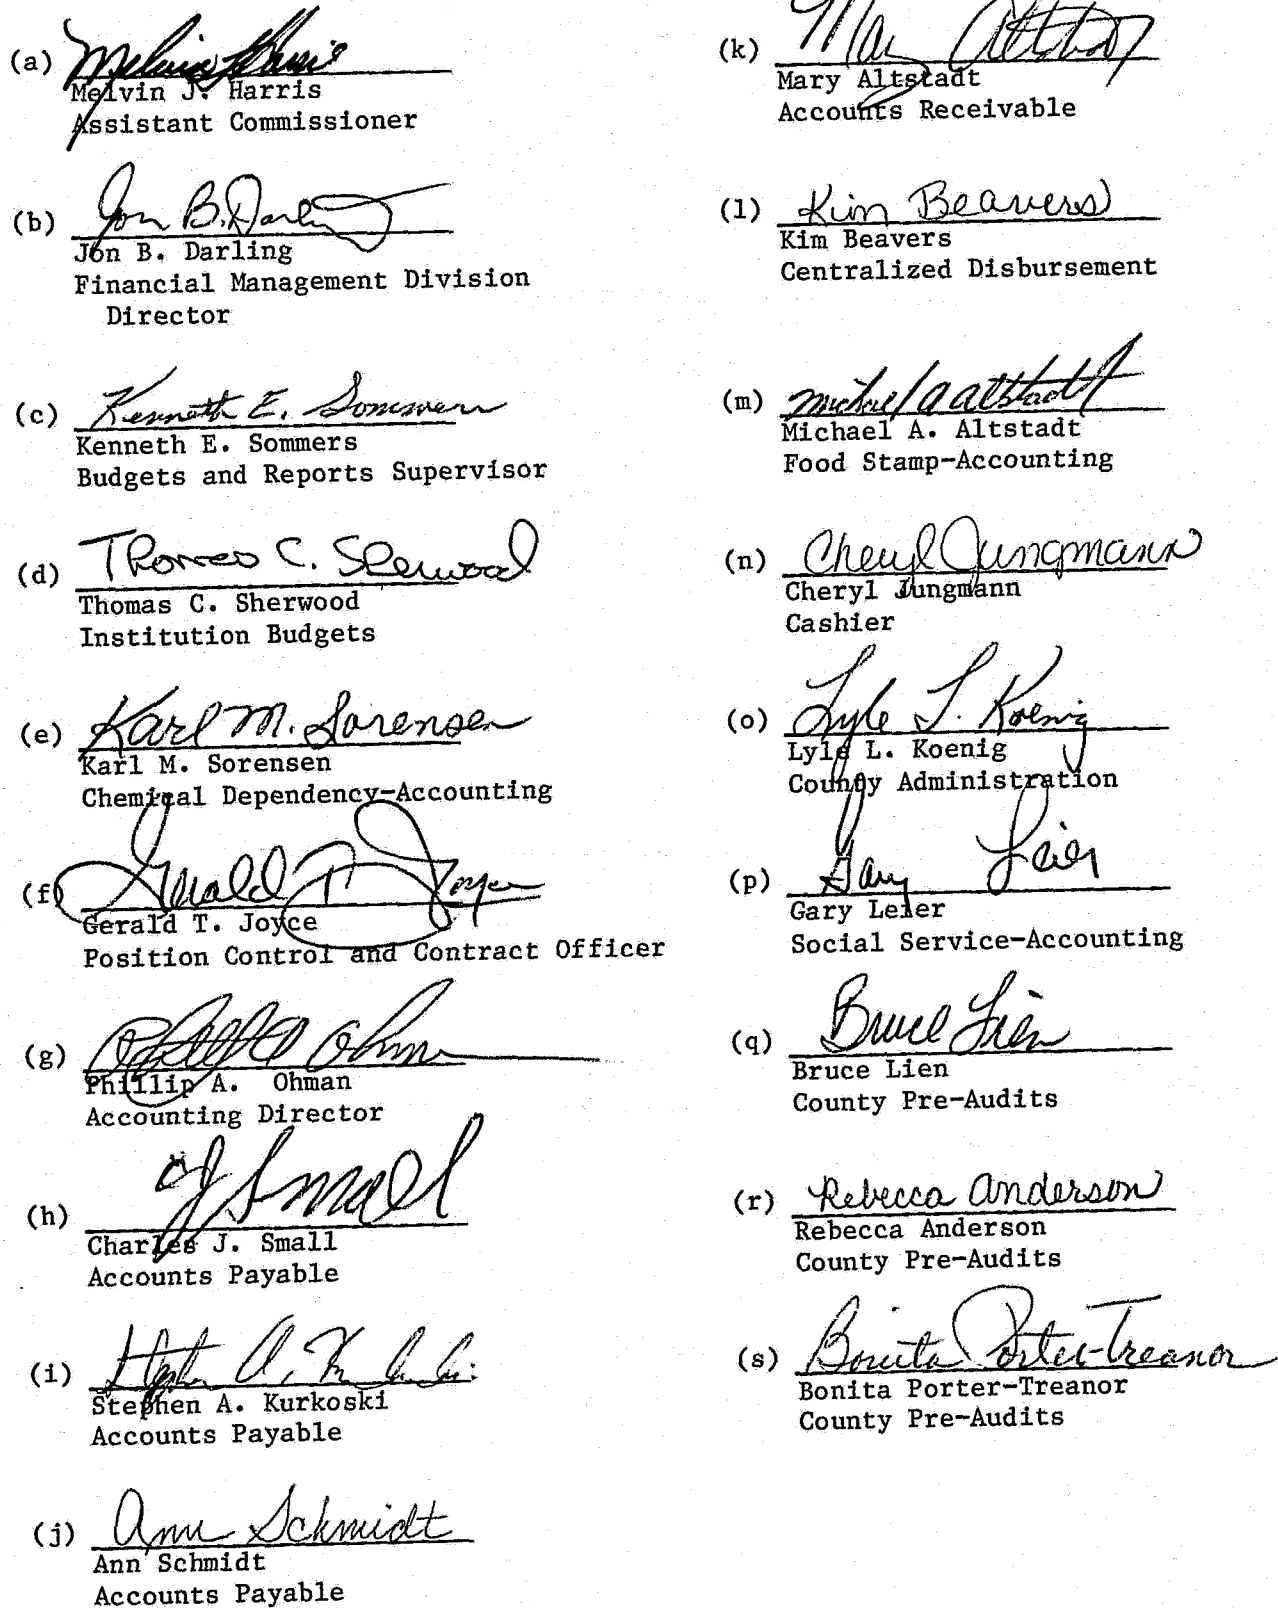 (a) Melvin J Harris
Melvin J. Harris
Assistant Commissioner
(b) Jon B. Darling
Jon B. Darling
Financial Management Division
Director
(c) Kenneth E. Sommers
Kenneth E. Sommers
Budgets and Reports Supervisor
(d) Thomas C. Sherwood
Thomas C. Sherwood
Institution Budgets
(e) Karl M. Sorensen
Karl M. Sorensen
Chemical Dependency-Accounting
(f) Gerald T Joyce
Gerald T. Joyce
Position Control and Contract Officer
(g) Phillip A Ohman
Phillip A. Ohman
Accounting Director
(h) CJ Small
Charles J. Small
Accounts Payable
(i) Stephen A. Kurkoski
Stephen A. Kurkoski
Accounts Payable
(j) Ann Schmidt
Ann Schmidt
Accounts Payable
(k) Mary Altstadt
Mary Altstadt
Accounts Receivable
(l) Kim Beavers
Kim Beavers
Centralized Disbursement
(m) Michael A Altstadt
Michael A. Altstadt
Food Stamp-Accounting
(n) Cheryl Jungmann
Cheryl Jungmann
Cashier
(o) Lyle L. Koenig
Lyle L. Koenig
County Administration
(p) Gary Leier
Gary Leier
Social Service-Accounting
(q) Bruce Lien
Bruce Lien
County Pre-Audits
(r) Rebecca Anderson
Rebecca Anderson
County Pre-Audits
(s) Bonita Porter-Treanor
Bonita Porter-Treanor
County Pre-Audits